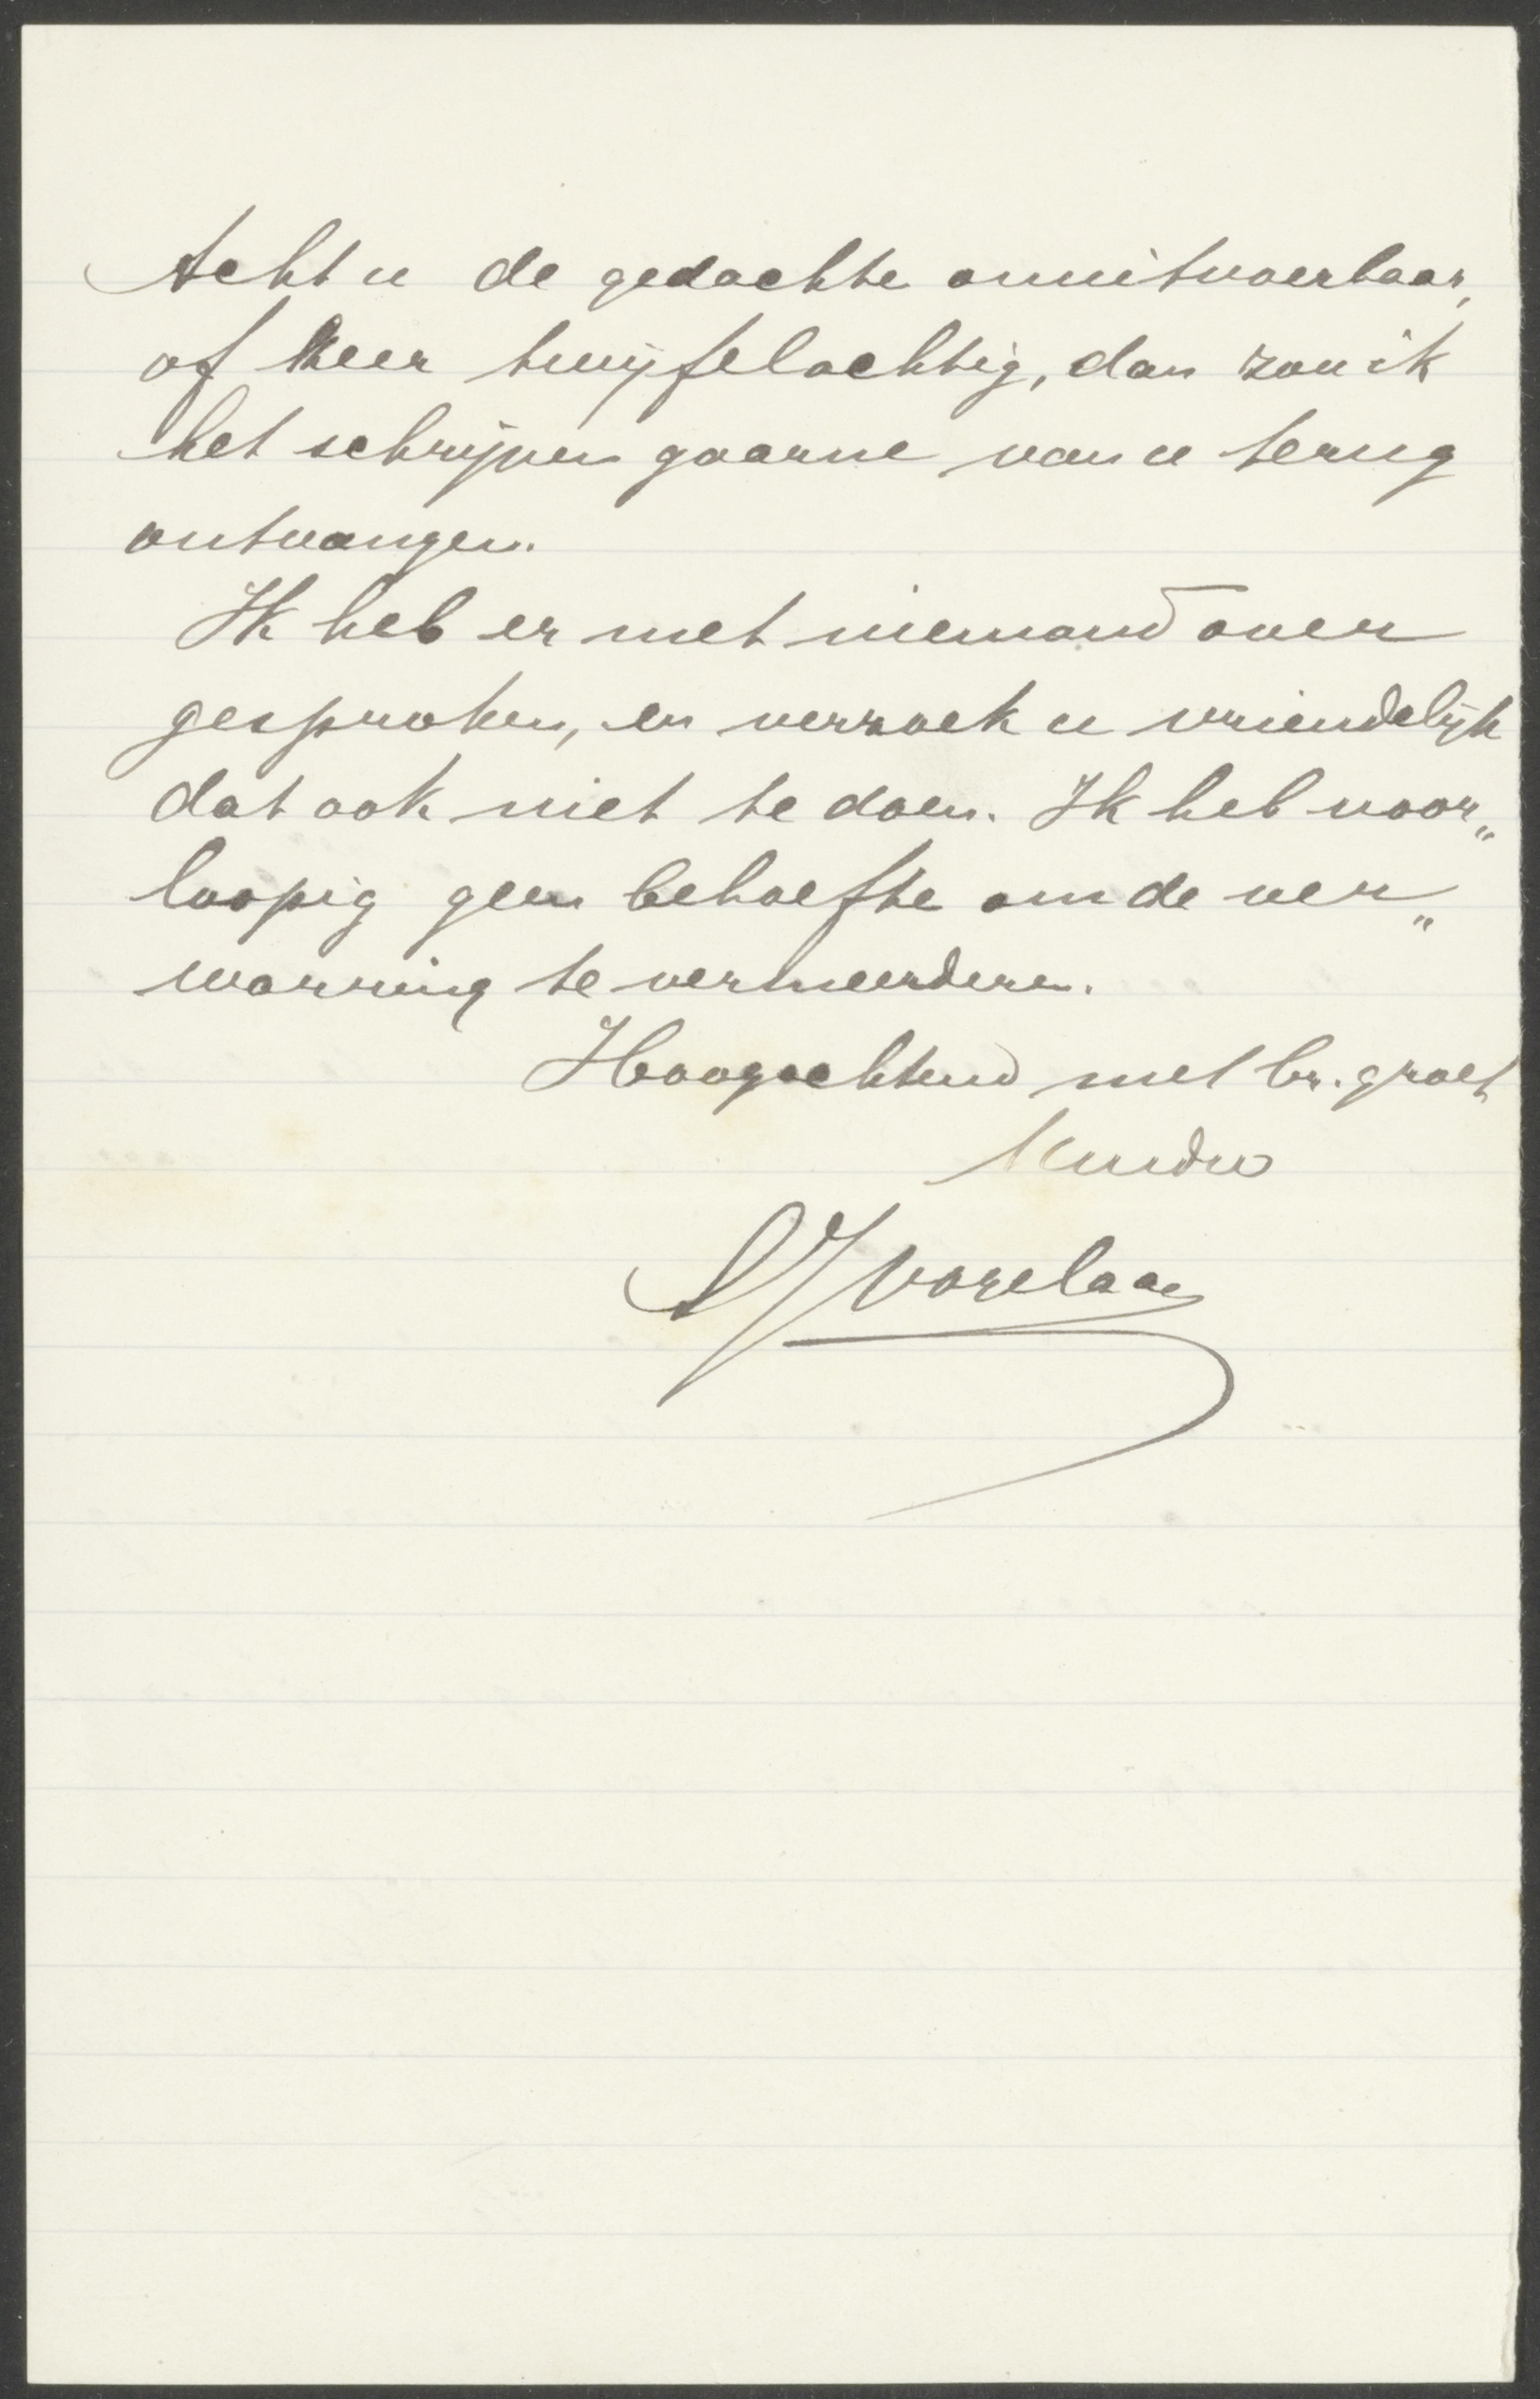 Acht u de gedachte onuitvoerbaar,
of zeer twijfelachtig, dan zou ik
het schrijven gaarne van u terug
ontvangen.
Ik heb er met niemand over
gesproken, en verzoek u vriendelijk
dat ook niet te doen. Ik heb voor„
loopig geen behoefte om de ver„
warring te vermeerderen.
Hoogachtend met br. groet
Uwdw